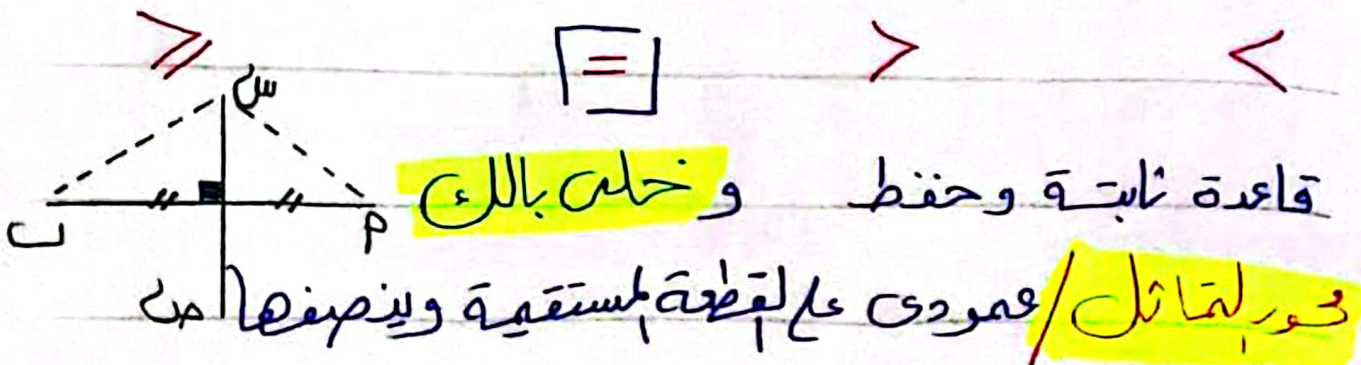 < > = ≥
س
قاعدة ثابتة وحفظ وخلى بالك
م ب
محور التماثل / عمودى على القطعة المستقيمة وينصفها
ص